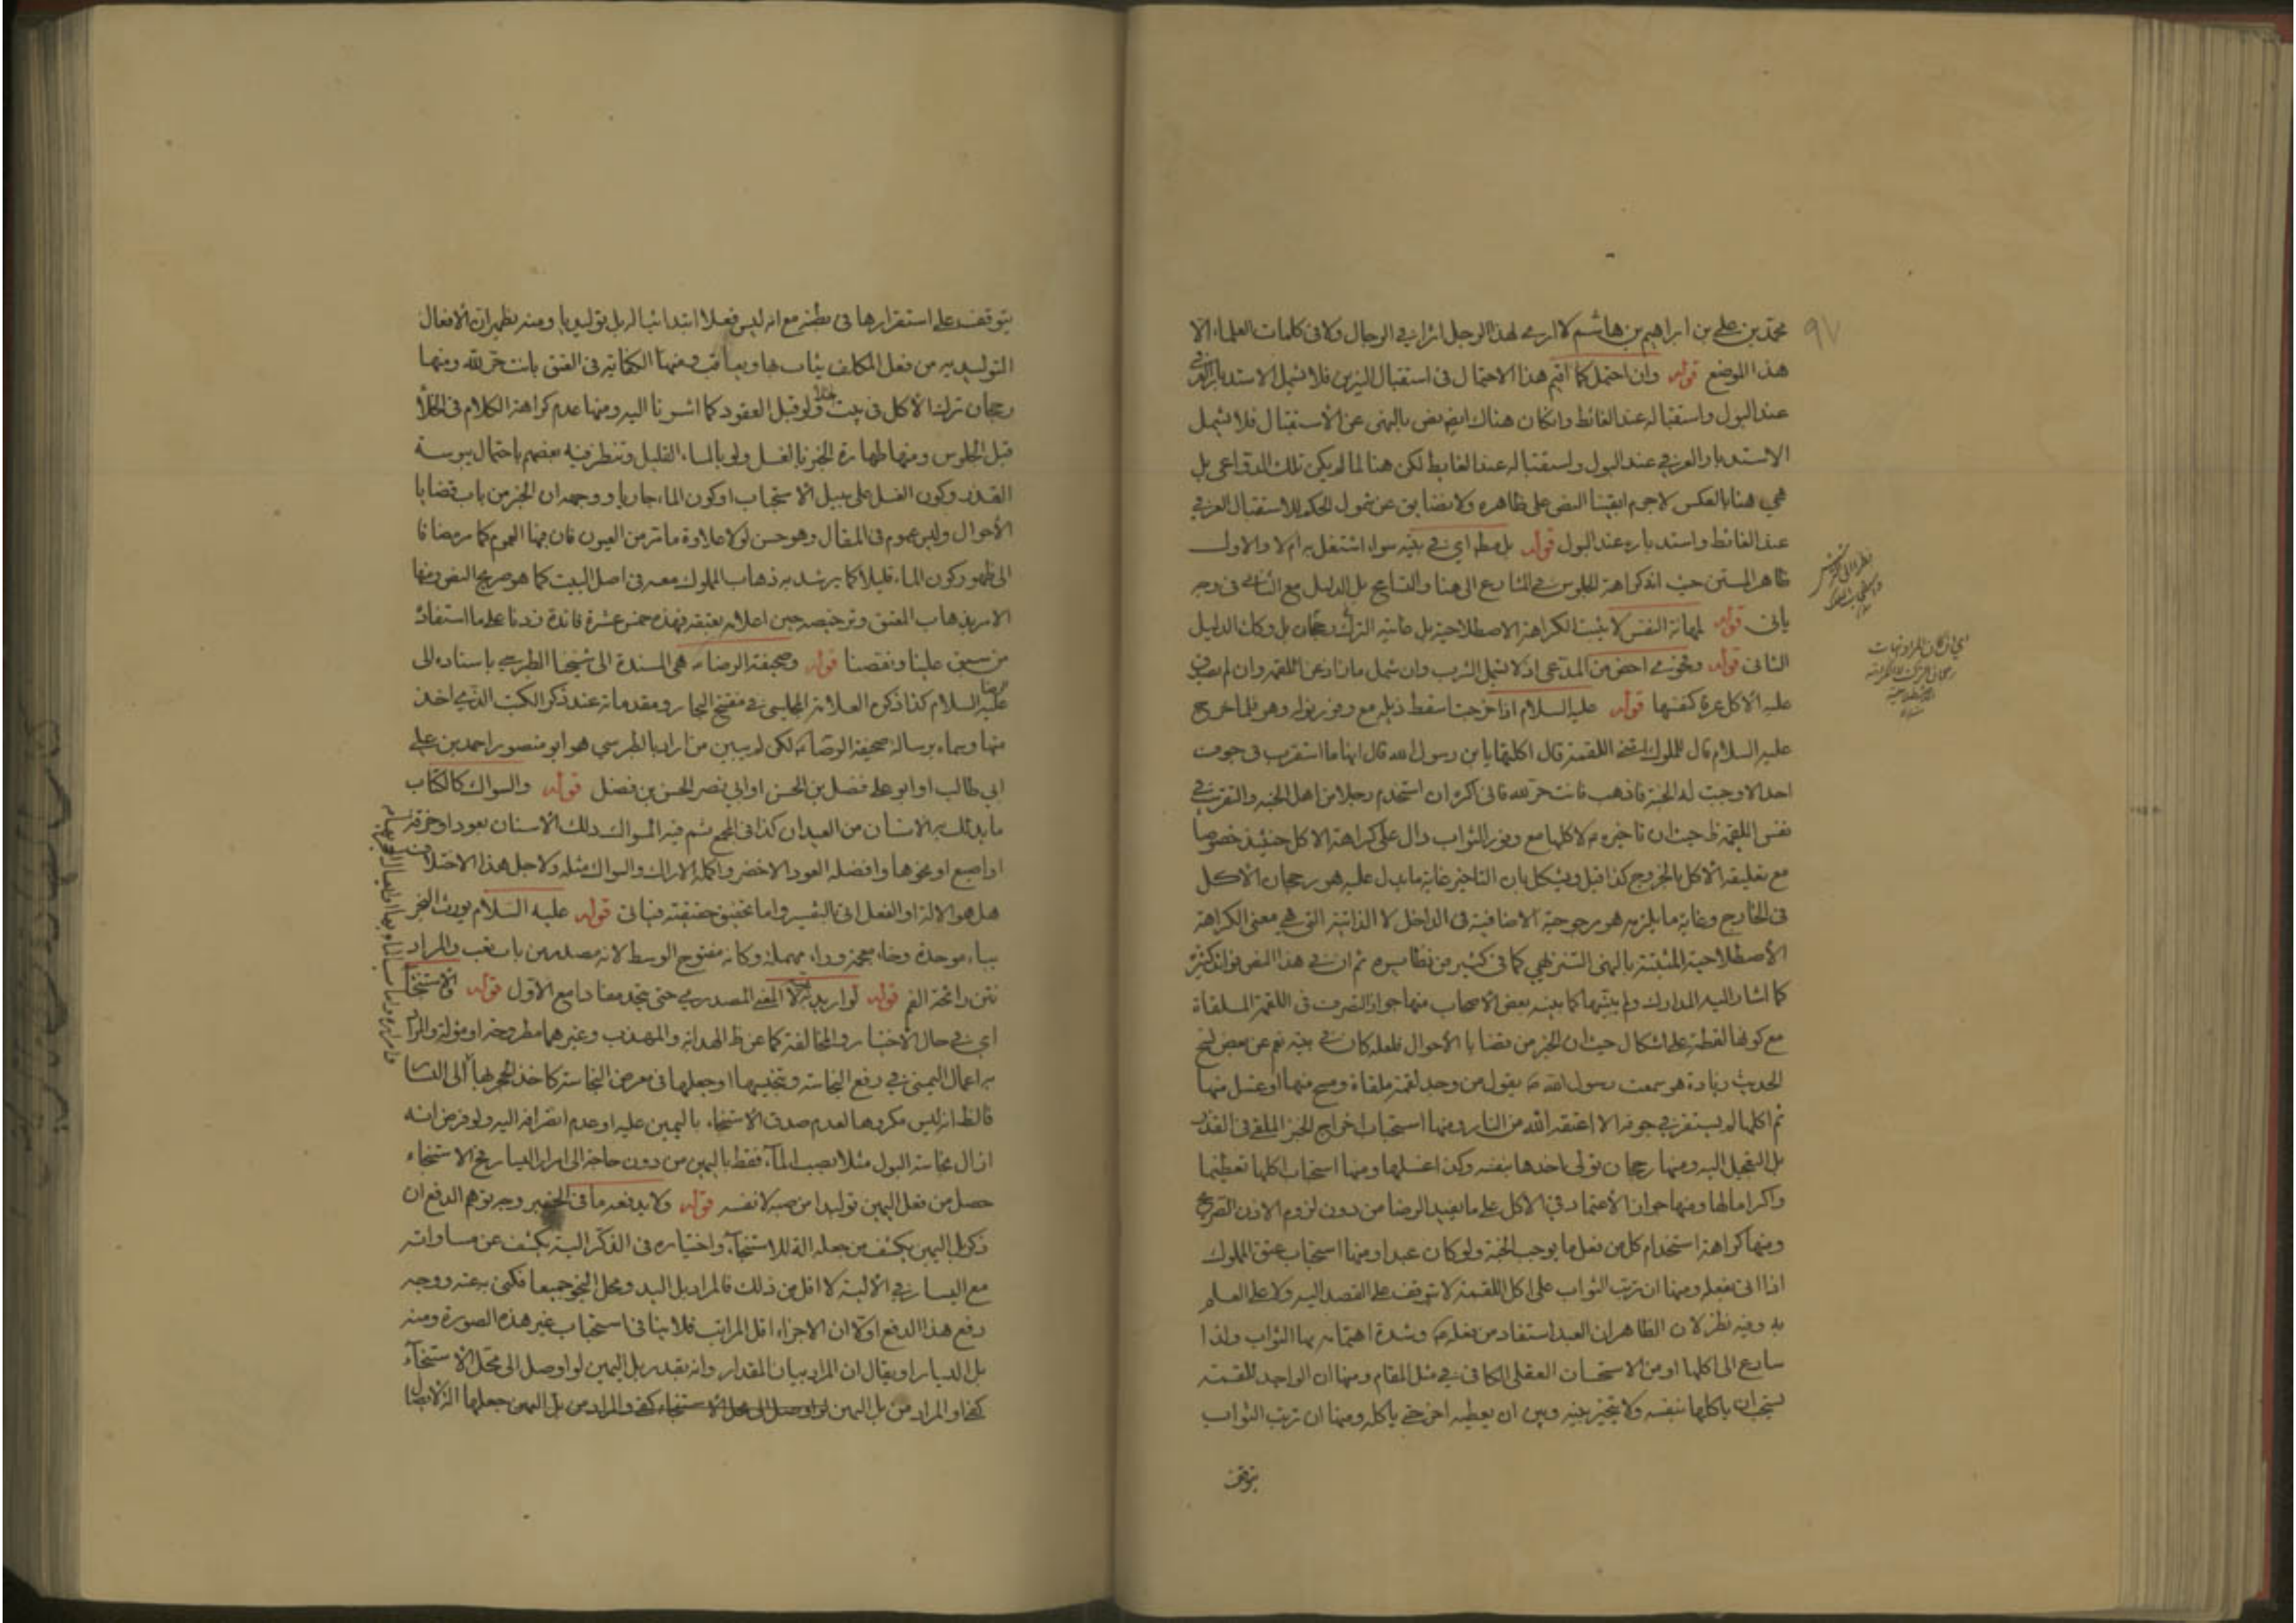 محمد بن علي بن ابراهيم بن هاشم لا ارى لهذا الرجل اثرا في الرجال ولا في كلمات العلماء الا
هذا الموضع قوله وان احتمل كما اقيم هذا الاحتمال في استقبال النيرين فلا يشمل الاستدبار
عند البول واستقباله عند الغائط وانكان هناك ايضا نص بالنهى عن الاستقبال فلا يشمل
الاستدبار العرفي عند البول واستقباله عند الغايط لكن هنا لما لم يكن تلك الدواعى بل
هي هنا بالعكس لا جرم ابقينا النص على ظاهره ولا نضايق عن شمول الحكم للاستقبال العرفي
عند الغائط واستدباره عند البول قوله بل مطم اي في بقيه سواء اشتغل به ام لا والاول
ظاهر المتن حيث اند كراهة الجلوس في المشارع الى هنا والتتابع بل الدليل مع الثانى في وجه
ياتى قوله لمهانة النفس لا يثبت الكراهة الاصطلاحية بل غايته الترك رجحان بل وكك الدليل
الثانى قوله وفحوى احض من المدعى اذ لا يشمل الشرب وان شمل مازاد عن اللقمة وان لم يصدق
عليه الاكل عرفا كفتها قوله عليه السلام اذا خرجت اسقط ذيله مع وفور نوله وهو فلما خرج
عليه السلام قال للمملوك اين اللقمة قال اكلتها يابن رسول الله قال انها ما استقرت في جوف
احد الا وجبت له الجنة فاذهب فانت حر لله فانى اكره ان استخدم رجلا من اهل الجنة والتقريب في
نفس اللقمة ظ حيث ان تاخيره م لاكلها مع وفور الثواب دال على كراهة الاكل حينئذ خصوصا
مع تعليقه الاكل بالخروج كذا قيل ويشكل بان التاخير غاية ما يدل عليه هو رجحان الاكل
في الخارج وغاية ما يلزمه هو مرجوحية الاضافية في الداخل لا الذاتية التي هي معنى الكراهة
الاصطلاحية المثبتة بالنهى التنزيهي كما في كثير من نظايره ثم ان في هذا النص فوائد كثيرة
كما اشار اليه المدارك ولم يبينها كما بينه بعض الاصحاب منها جواز التصرف في اللقمة الملقاة
مع كونها لقطة على اشكال حيث ان الخبر من قضايا الأحوال فلعله كان في بيته نعم عن بعض نسخ
الحديث زيادة هو سمعت رسول الله ص يقول من وجد لقمة ملقاة ومسح منها او غسل منها
ثم اكلها لم يستقر في جوفه الا اعتقه الله من النار ومنها استحباب اخراج الخبز الملقى في القذر
بل التعجيل اليه ومنها رجحان تولى اخذها بنفسه وكذا غسلها ومنها استحباب اكلها تعظيما
واكراما لها ومنها جواز الاعتماد في الاكل على ما يفيد الرضا من دون لزوم الاذن الصريح
ومنها كراهة استخدام كل من فعل ما يوجب الجنة ولو كان عبدا ومنها استحباب عتق المملوك
اذا اتى بفعله ومنها ان ترتب الثواب على اكل اللقمة لا يتوقف على القصد اليه ولا على العلم
به وفيه نظر لان الظاهر ان العبد استفاد من فعله م وشدة اهتمامه بها الثواب ولذا
سارع الى اكلها او من الاستحسان العقلى الكافى في مثل المقام ومنها ان الواجد للقمة
يستحب ان ياكلها بنفسه ولا يتخير بينه وبين ان يعطيه اخر حتى ياكله ومنها ان ترتب الثواب
يتوقف
٩٧
يتوقف على استقرارها في بطنه مع انه ليس فعلا ابتدائيا له بل توليديا ومنه يظهر ان الافعال
التوليديه من فعل المكلف يثاب بها ويعاقب ومنها الكفاية في العتق بانت حر لله ومنها
رجحان ترك الاكل في بيت الخلاء ولو قبل العقود كما اشرنا اليه ومنها عدم كراهة الكلام في الخلأ
قبل الجلوس ومنها طهارة الخبز بالغسل ولو بالماء القليل وتنظر فيه بعضهم باحتمال يبوسة
القذر وكون الغسل على سبيل الاستحباب او كون الماء جاريا ووجهه ان الخبر من باب قضايا
الأحوال وليس عموم في المقال وهو حسن لولا ما رواه ما تر من العيون فان فيها العموم كما مر مضافا
الى ظهور كون الماء قليلا كما يرشد به ذهاب المملوك معه في اصل البيت كما هو صريح النص ومنها
الامر بذهاب المعتق وترخيصه حين اعلانه بعتقه فهذه خمس عشرة فائدة زدنا على ما استفاد
من سبق علينا ونقصنا قوله وصحيفة الرضا م هي المسندة الى شيخنا الطبرسي باسناده الى
الرضا عليه السلام كذا ذكره العلامة المجلسى في مفتتح البحار ومقدماته عند ذكر الكتب الذى اخذ
منها وسماه برسالة صحيفة الرضا م لكن لم يبين من اراد بالطبرسي هو ابو منصور احمد بن علي
ابي طالب او ابو على فضل بن الحسن او ابي نصر الحسن بن فضل قوله والسواك كالكتاب
ما يدلك به الانسان من العيدان كذا في المجمع ثم فيه السواك دلك الاسنان بعود او خرقة
او اصبع او نحوها وافضله العود الاخضر واكمله الاراك والسواك مثله ولاجل هذا الاختلاف
هل هو الالة او الفعل اتى بالتفسير واما تحقيق حقيقته فياتى قوله عليه السلام يورث البخر
بباء موحدة وخاء معجمة وراء مهملة وكانه مفتوح الوسط لانه مصدر من باب تعب والمراد
نتن رائحة الفم قوله لو اريد به المعنى المصدري حتى يتحد معنا دا مع الاول قوله والاستنجاء
اي في حال الاختيار والمخالفة كما عن ظ الهداية والمهذب وغيرهما مطروحة او مؤولة والمراد
به اعمال اليمنى في رفع النجاسة وتجنيبها او جعلها في معرض النجاسة كاخذ الحجر بها الى اليسار
فالظ انه ليس مكروها لعدم صدق الاستنجاء باليمين عليه او عدم انصرافه اليه ولو فرض انه
ازال نجاسة البول مثلا بصب الماء فقط باليمين من دون حاجة الى امرار اليسار فح الاستنجاء
حصل من فعل اليمين توليدا من صبه لا نفسه قوله ولا يدفعه ما في الخبر وجه توهم الدفع ان
ذكر بل اليمين يكشف من جعله الة للاستنجاء واختياره في الذكر اليه يكشف عن مساواته
مع اليسار في الألية لا اقل من ذلك فالمراد بل اليد ومحل النجو جميعا فكنى به عنه ووجه
دفع هذا الدفع اولا ان الاجزاء اقل المراتب فلا ينافى استحباب غير هذه الصورة ومنه
بل اليسار او يقال ان المراد بيان المقدار وانه بقدر بل اليمين لو اوصل الى محل الاستنجاء
كفى او المراد من بل اليمين جعلها الة لايصال